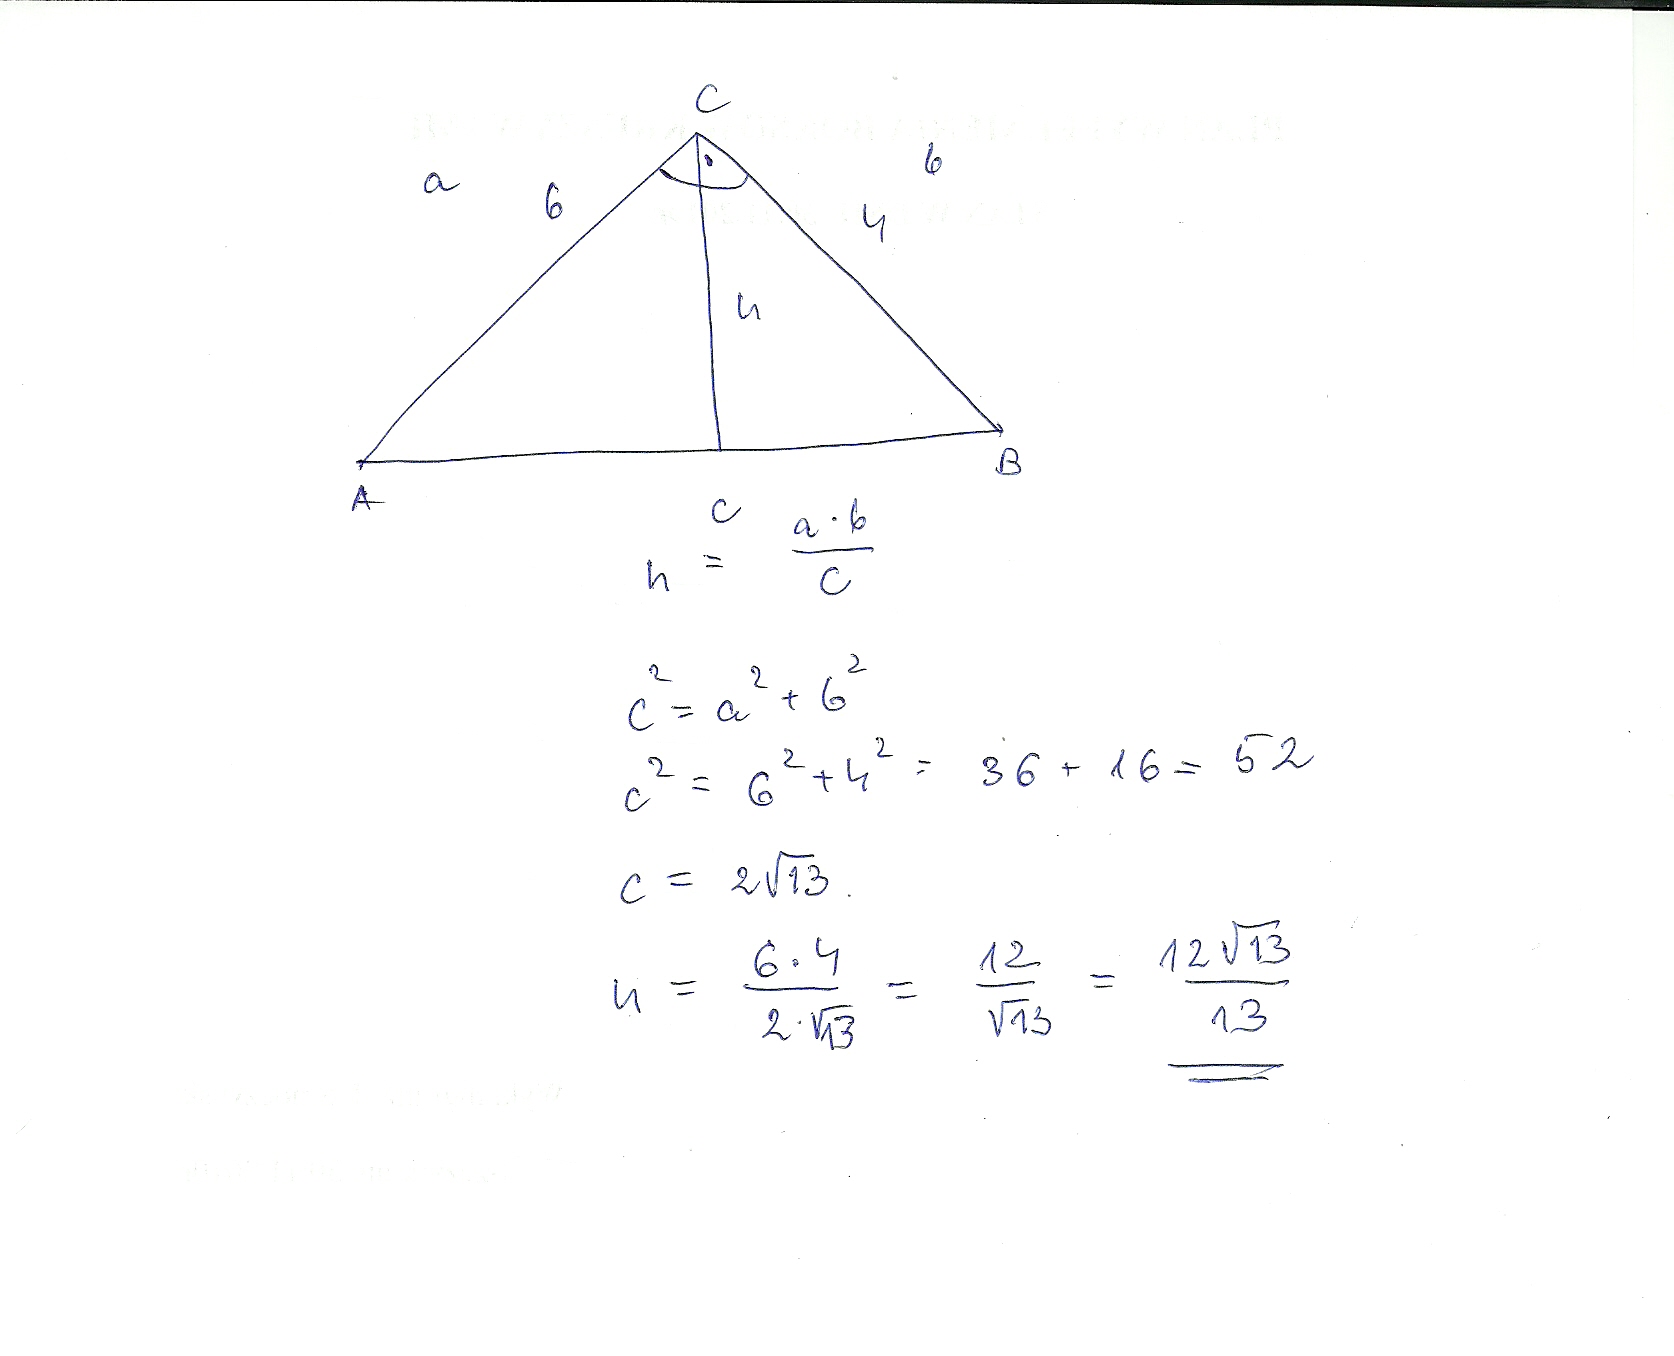 C
a 6 b 4
h
A B
c
h = a · b / c
c² = a² + b²
c² = 6² + 4² = 36 + 16 = 52
c = 2√13.
h = 6 · 4 / 2 · √13 = 12 / √13 = 12√13 / 13